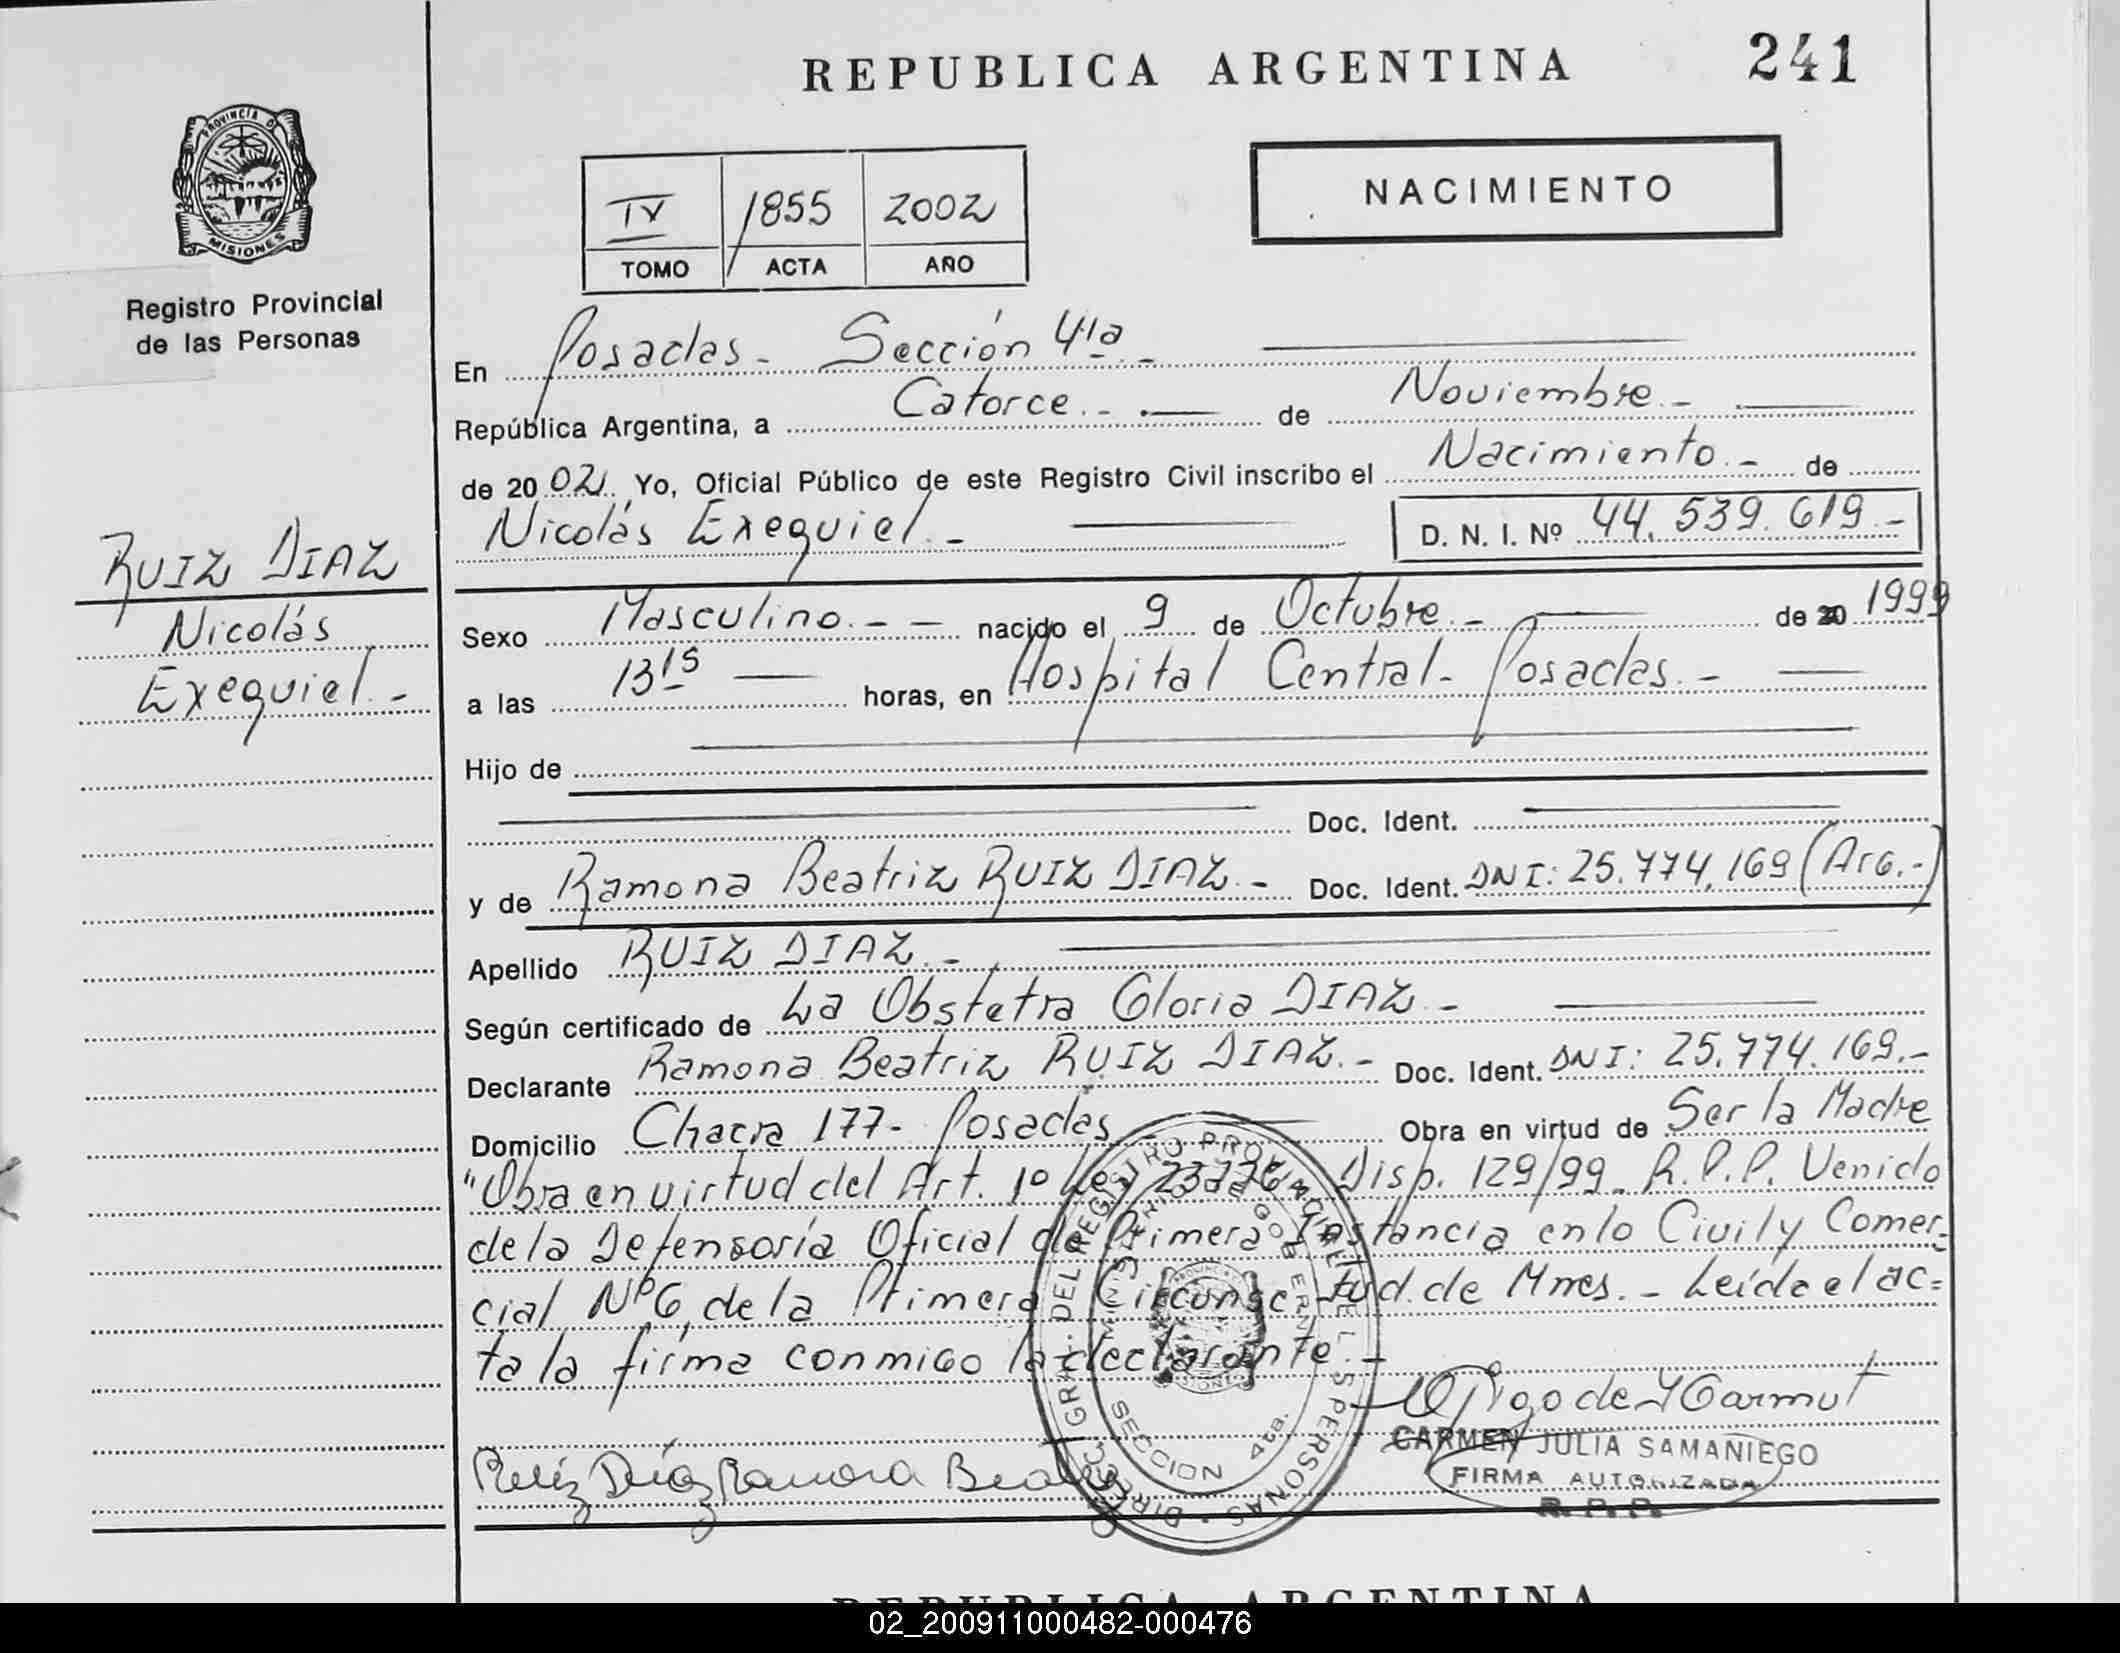 REPUBLICA ARGENTINA
241
PROVINCIA DE
MISIONES
Registro Provincial
de las Personas
NACIMIENTO
IV 1855 2002
TOMO ACTA AÑO
En Posadas.- Sección 4ta.-
República Argentina, a Catorce.- de Noviembre.-
de 2002. Yo, Oficial Público de este Registro Civil inscribo el Nacimiento.- de
Nicolás Exequiel.- D. N. I. Nº 44.539.619.-
RUIZ DIAZ
Nicolás
Exequiel.-
Sexo Masculino.- - nacido el 9 de Octubre.- de 20 1999
a las 13 15 horas, en Hospital Central- Posadas.-
Hijo de
Doc. Ident.
y de Ramona Beatriz RUIZ DIAZ.- Doc. Ident. DNI: 25.774.169 (Arg.-)
Apellido RUIZ DIAZ.-
Según certificado de La Obstetra Gloria DIAZ.-
Declarante Ramona Beatriz RUIZ DIAZ.- Doc. Ident. DNI: 25.774.169.-
Domicilio Chacra 177- Posadas.- Obra en virtud de Ser la Madre
"Obra en virtud del Art. 1º Ley 23776 Disp. 129/99. R.P.P. Venido
de la Defensoría Oficial de Primera Instancia en lo Civil y Comer-
cial Nº6, de la Primera Circunsc. Jud. de Mnes.- Leída el ac=
ta la firma conmigo la declarante.-
DIRECC. GRAL. DEL REGISTRO PROVINCIAL DE LAS PERSONAS
MINISTERIO DE GOBIERNO
SECCION 4ta.
Ruiz Díaz Ramona Beatriz
CARMEN JULIA SAMANIEGO
FIRMA AUTORIZADA
R. P. P.
REPUBLICA ARGENTINA
02_200911000482-000476